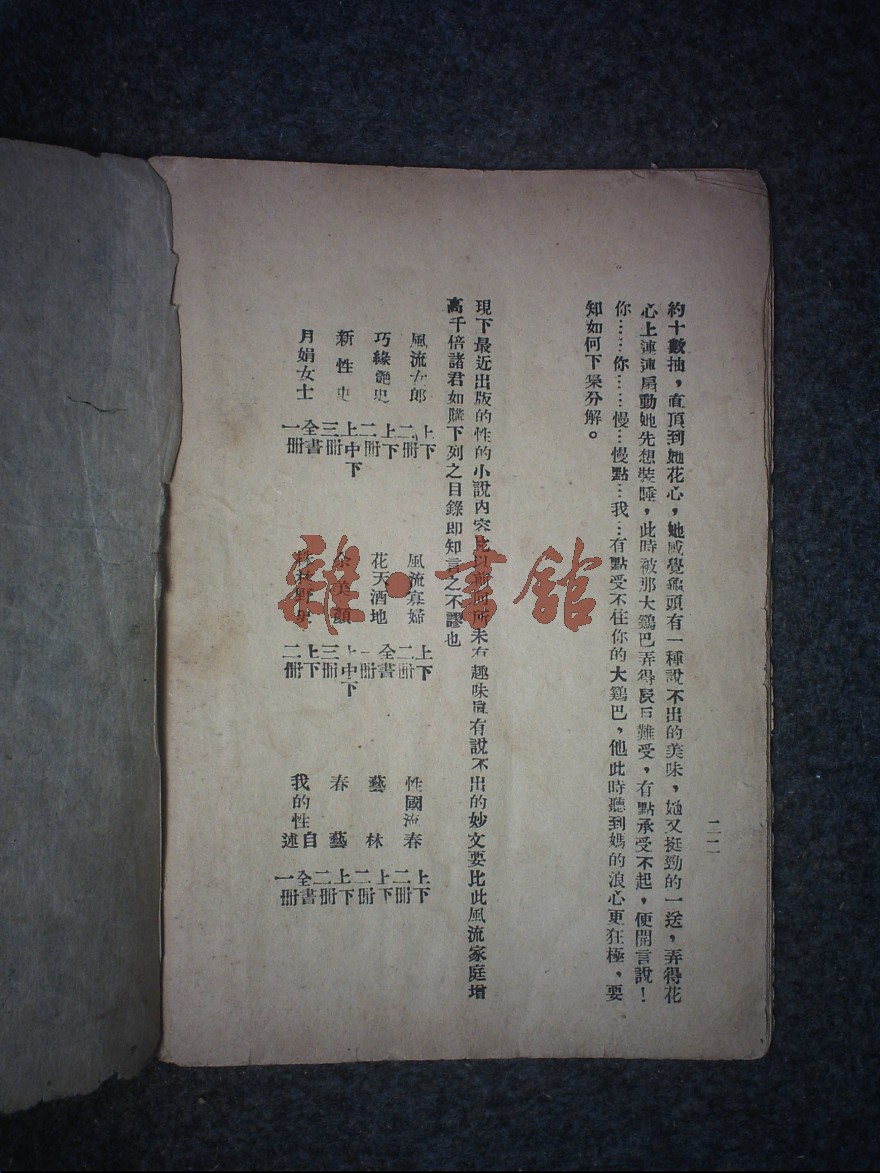 二二
約十數抽，直頂到她花心，她感覺龜頭有一種說不出的美味，她又挺勁的一送，弄得花
心上連連扇動她先想裝睡，此時被那大鷄巴弄得難受，有點承受不起，便開言說！
你……你……慢…慢點…我…有點受不住你的大鷄巴，他此時聽到媽的浪心更狂極，要
知如何下案分解。
現下最近出版的性的小說內容比以前所未有趣味眞有說不出的妙文要比此風流家庭增
高千倍諸君如購下列之目錄即知言之不謬也
風流女郎 上下二冊
風流寡婦 上下二冊
性國流春 上下二冊
巧緣艶史 上下二冊
花天酒地 全書一冊
藝林 上下二冊
新性史 上中下三冊
余美顏 上中下三冊
春藝 上下二冊
月娟女士 全書一冊
株林野史 上下二冊
我的性自述 全書一冊
雜·書館